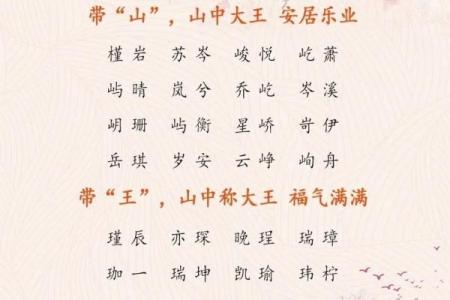 带“山”，山中大王 安居乐业
槿岩 苏岑 峻悦 屹萧
屿晴 岚兮 乔屹 岑溪
岄珊 屿衡 星峤 岢伊
岳琪 岁安 云峥 峋舟
带“王”，山中称大王 福气满满
瑾辰 亦琛 晚珵 瑞璋
珈一 瑞坤 凯瑜 玮柠